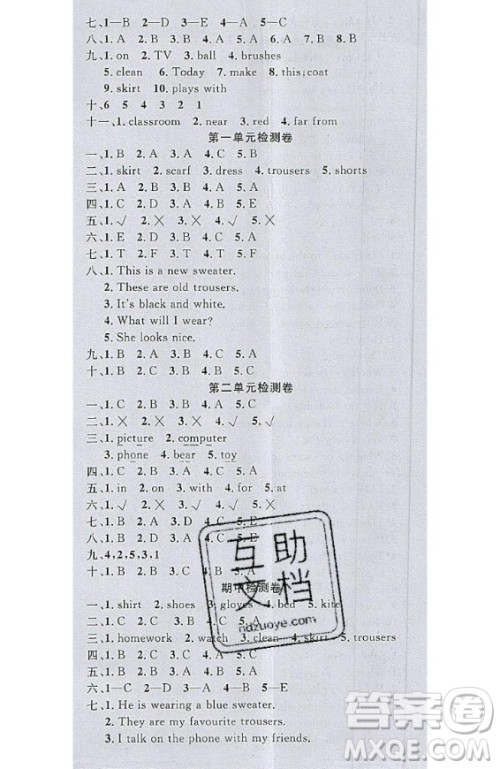 七、1—B 2—A 3—D 4—E 5—C
八、1.C 2.A 3.B 4.A 5.A 6.B 7.B 8.B
九、1. on 2. TV 3. ball 4. brushes
5. clean 6. Today 7. make 8. this;coat
9. skirt 10. plays with
十、6 5 4 3 2 1
十一、1. classroom 2. near 3. red 4. far from
第一单元检测卷
一、1. B 2. A 3. A 4. C 5. B
二、1. skirt 2. scarf 3. dress 4. trousers 5. shorts
三、1. A 2. B 3. A 4. B 5. A
四、1. C 2. D 3. A 4. B 5. E
五、1. √ 2. × 3. × 4. √ 5. ×
六、1. E 2. D 3. A 4. B 5. C
七、1. T 2. F 3. T 4. F 5. F
八、1. This is a new sweater.
2. These are old trousers.
3. It's black and white.
4. What will I wear?
5. She looks nice.
九、1. B 2. A 3. A 4. C 5. B
十、1. B 2. C 3. B 4. A 5. C
第二单元检测卷
一、1. C 2. C 3. B 4. A 5. C
二、1. × 2. × 3. √ 4. √ 5. √
三、1. picture 2. computer
3. phone 4. bear 5. toy
四、1. C 2. B 3. A 4. A 5. C
五、1. in 2. on 3. with 4. for 5. at
六、1. √ 2. × 3. √ 4. × 5.
七、1—B 2—A 3—D 4—C 5—E
八、1. B 2. A 3. B 4. C 5. B
九、4,2,5,3,1
十、1. B 2. B 3. A 4. A
期中检测卷
一、1. shirt 2. shoes 3. gloves 4. bed 5. kite
二、1. C 2. C 3. A 4. B 5.
三、1. homework 2. watch 3. clean 4. skirt 5. trousers
四、1. C 2. B 3. B 4. A
五、1. A 2. A 3. B 4. A 5.
六、1—C 2—A 3—D 4—B 5—E
七、1. He is wearing a blue sweater.
2. They are my favourite trousers.
3. I talk on the phone with my friends.
互助文档
ndzuoye.com
答案圈
MXQE.COM